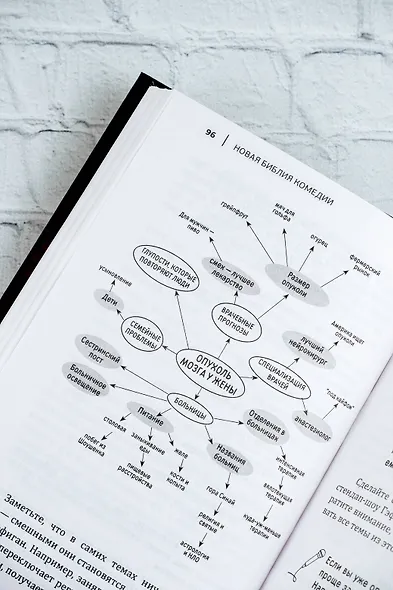 96 | НОВАЯ БИБЛИЯ КОМЕДИИ
мяч для
гольфа
грейпфрут
огурец
фермерский
рынок
Для мужчин —
пиво
ГЛУПОСТИ, КОТОРЫЕ
ПОВТОРЯЮТ ЛЮДИ
смех — лучшее
лекарство
Размер
опухоли
усыновление
Дети
СЕМЕЙНЫЕ
ПРОБЛЕМЫ
ВРАЧЕБНЫЕ
ПРОГНОЗЫ
лучший
нейрохирург
Америка ищет
опухоли
Сестринский
пост
ОПУХОЛЬ
МОЗГА У ЖЕНЫ
СПЕЦИАЛИЗАЦИЯ
ВРАЧЕЙ
"под кайфом"
анастезиолог
Больничное
освещение
БОЛЬНИЦЫ
Питание
Отделения в
больницах
Названия
больниц
столовая
побег из
Шоушенка
запихивание
еды
пищевые
расстройства
желе
кости и
копыта
гора Синай
религия и
святые
астрология
и НЛО
интенсивная
терапия
вялотекущая
терапия
куда-уж-меньше
терапия
Заметьте, что в самих темах нич
— смешными они становятся
фиган. Например, заня
переключает рег
й, получае
Сделайте
стендап-шоу Гэф
ратите внимание,
вать все темы из это
Если вы уже оп
проще за
Нап